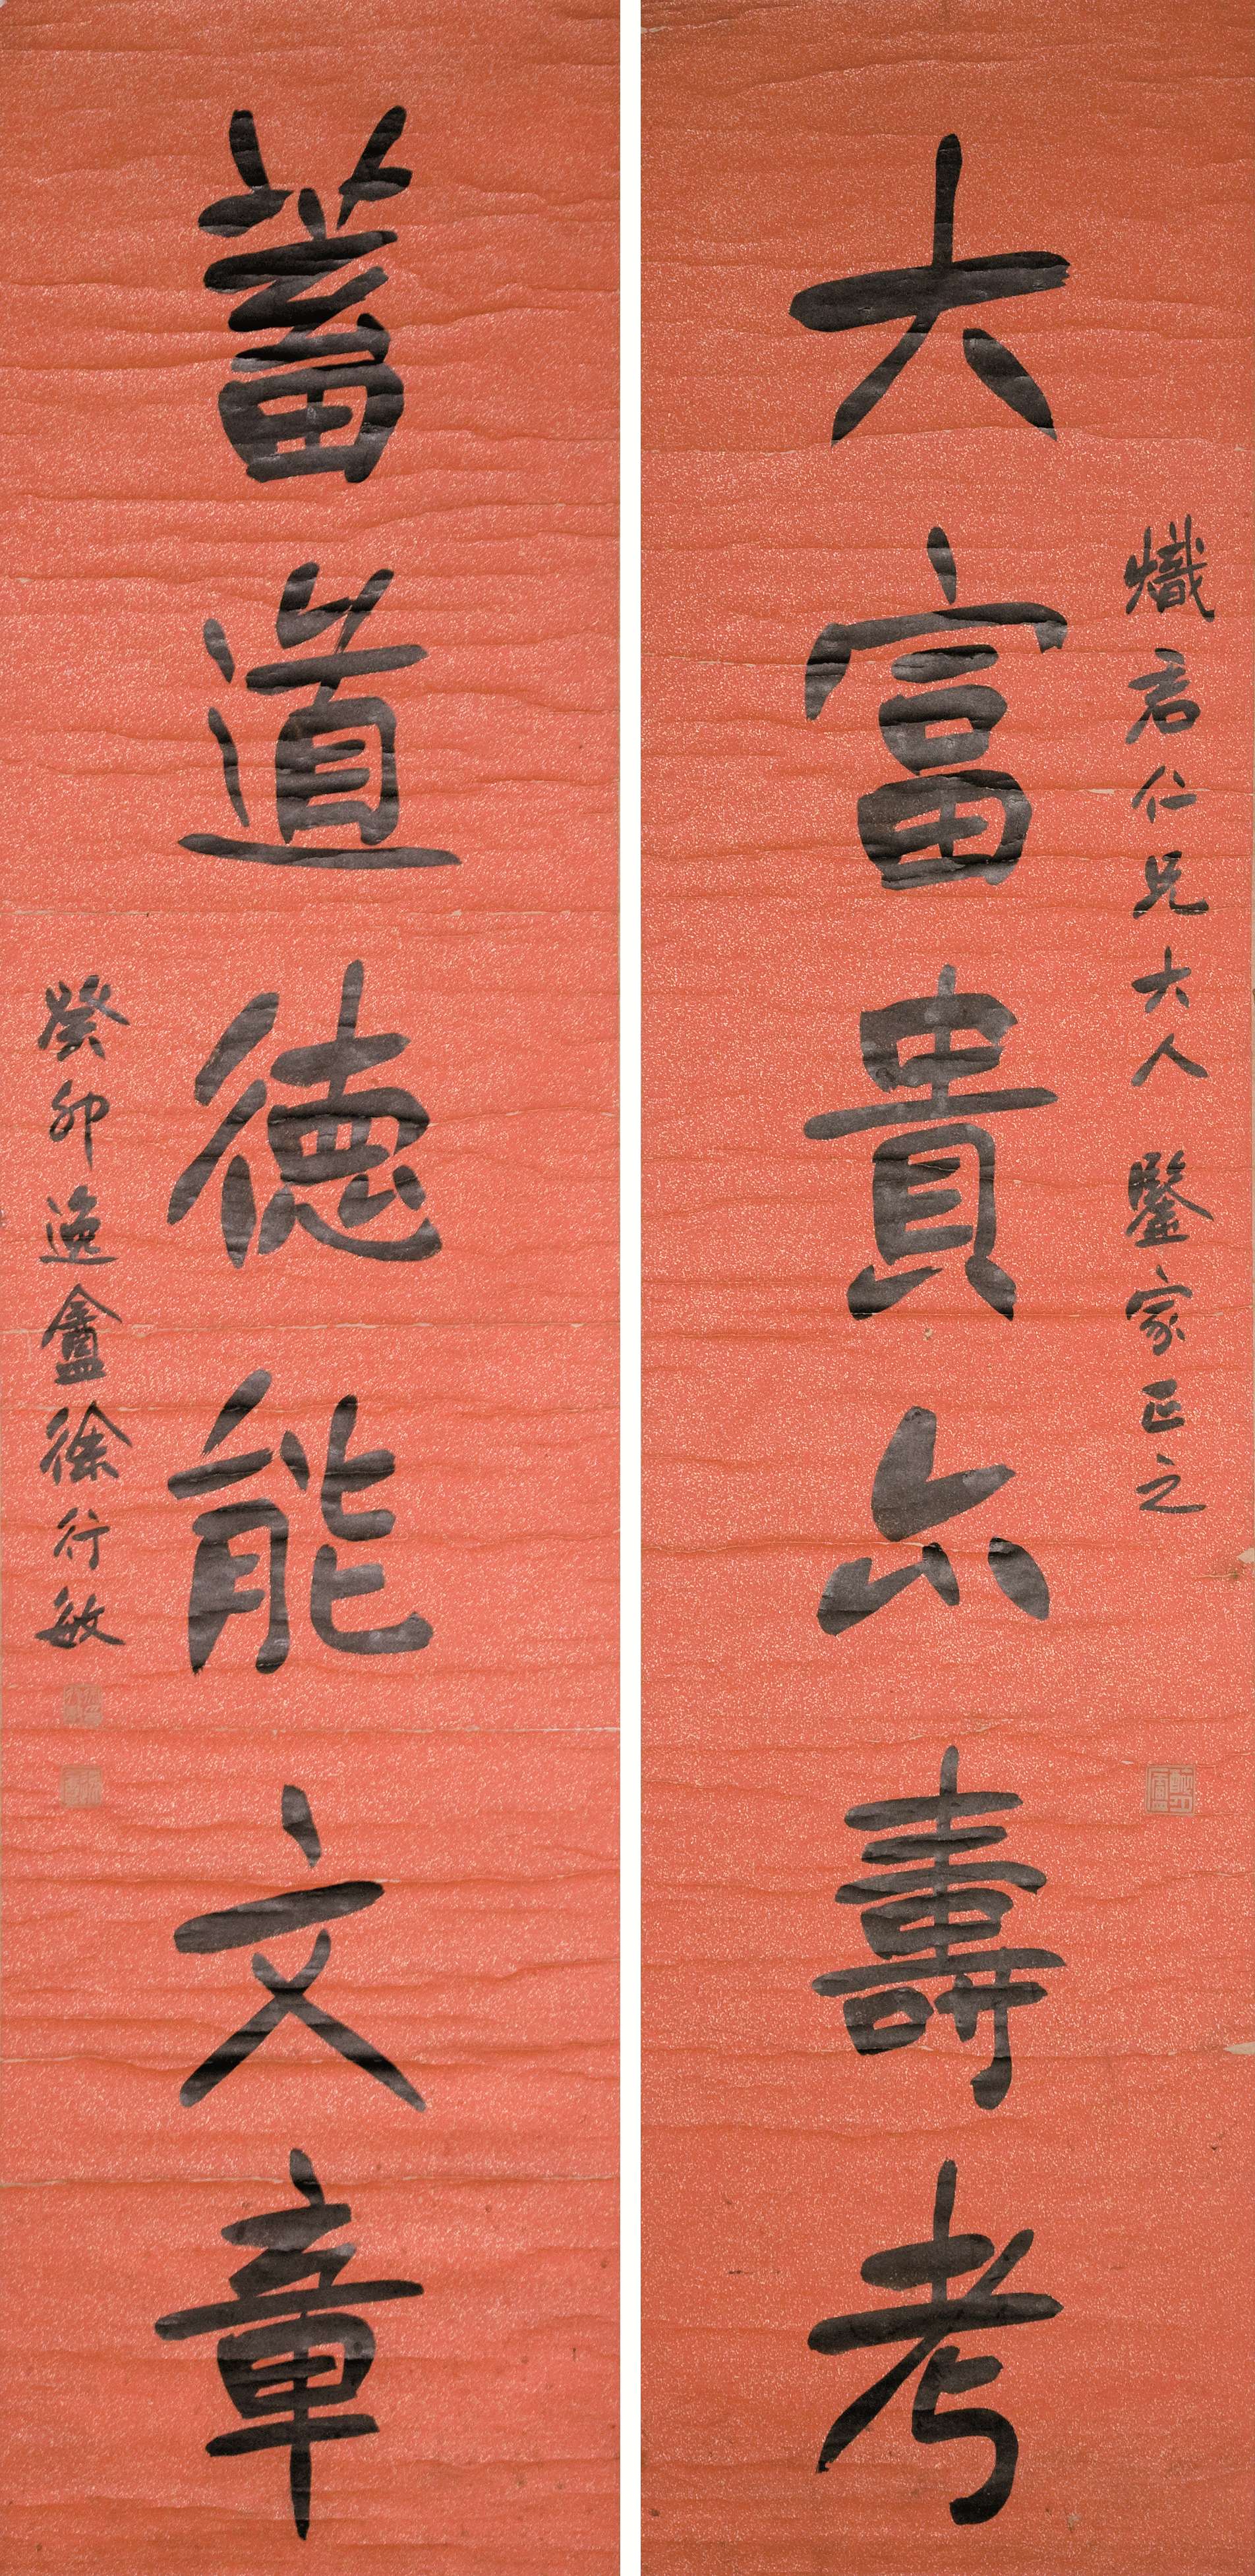 熾君仁兄大人 鑒家正之
大富貴亦壽考
蓄道德能文章
癸卯逸盦徐行敏